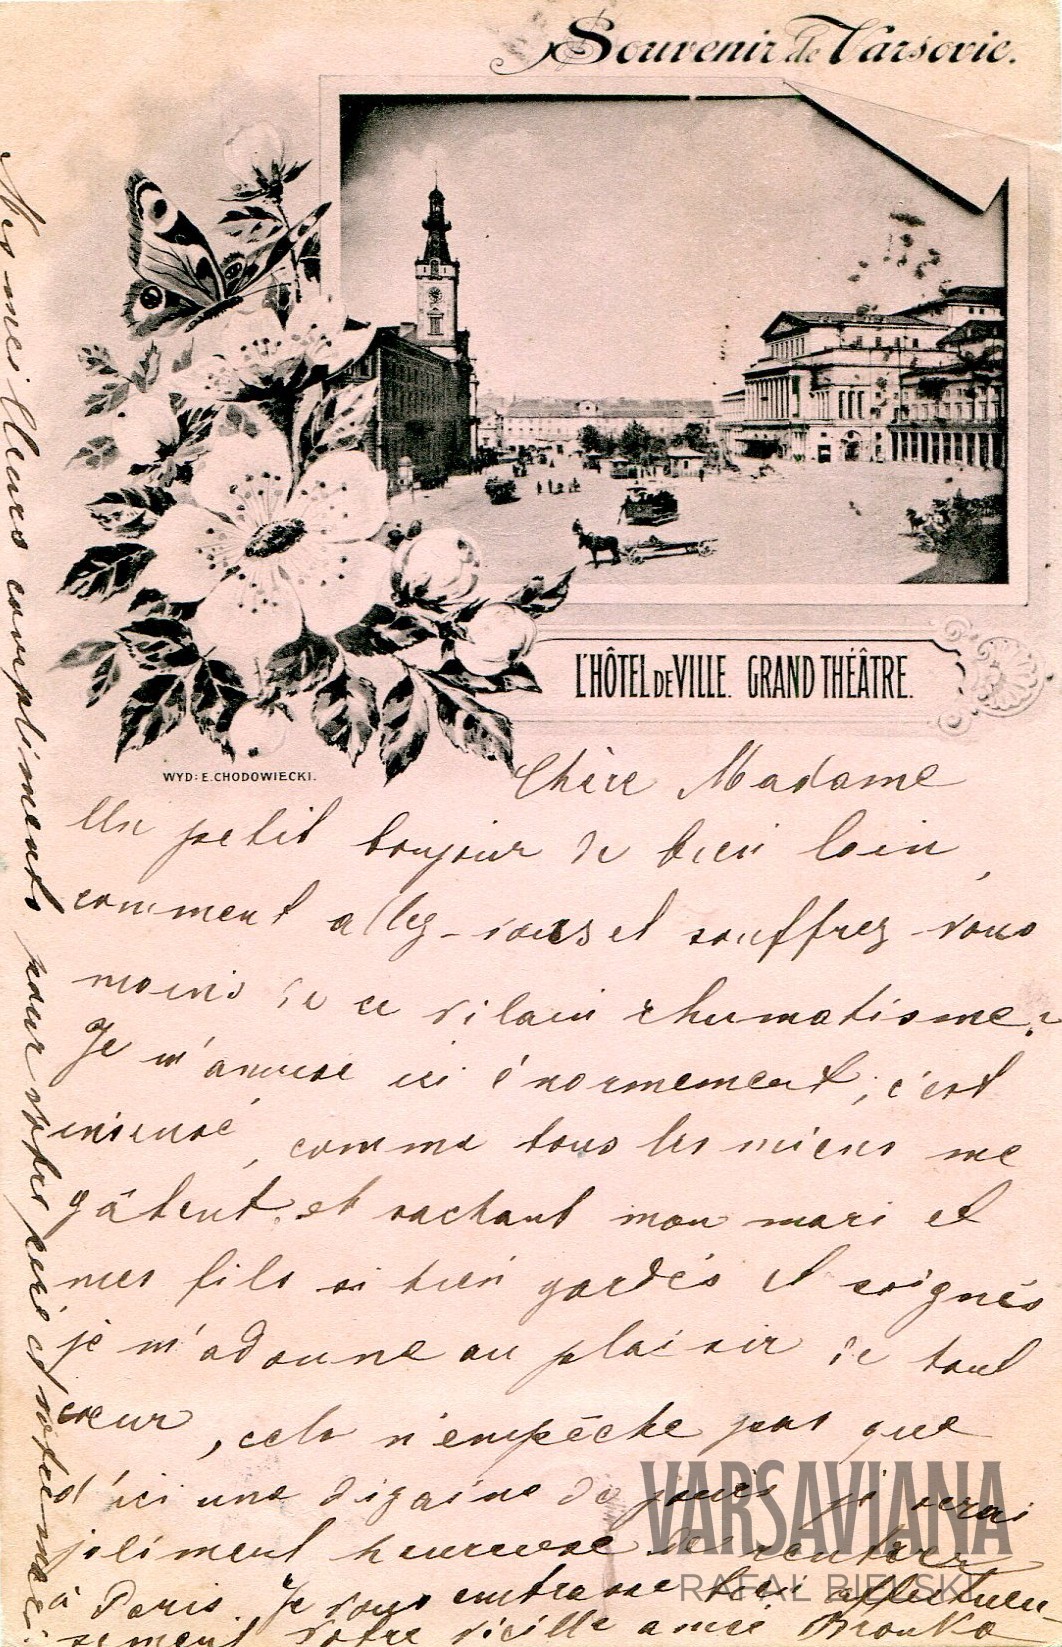 Souvenir de Varsovie.
L'HÔTEL DE VILLE. GRAND THÉÂTRE.
WYD: E. CHODOWIECKI.
Chère Madame
Un petit bonjour de bien loin,
comment allez-vous et souffrez vous
moins de ce vilain rhumatisme?
Je m'amuse ici énormement, c'est
insensé, comme tous les miens me
gâtent, et sachant mon mari et
mes fils si bien gardés et soignés
je m'adonne au plaisir de tout
cœur, cela n'empêche pas que
d'ici une dizaine de jours je serai
joliment heureuse de rentrer
à Paris. Je vous embrasse bien affectueu-
sement votre vieille amie Bronka
Mes meilleurs compliments pour votre père et votre
VARSAVIANA
RAFAŁ BIELSKI